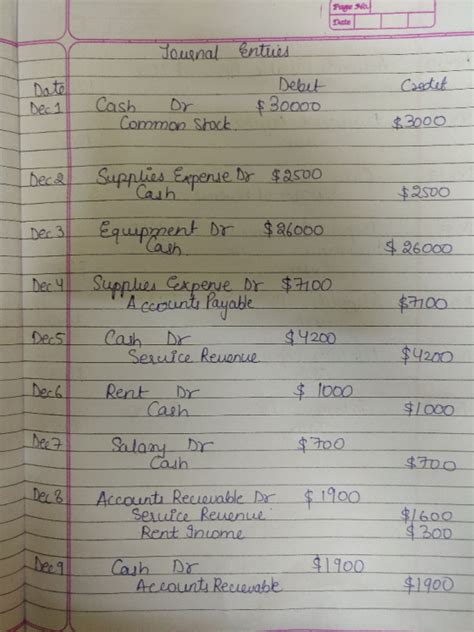 Page No.
Date
Journal Entries
Date Debit Credit
Dec 1 Cash Dr $30000
Common Stock $3000
Dec 2 Supplies Expense Dr $2500
Cash $2500
Dec 3 Equipment Dr $26000
Cash $26000
Dec 4 Supplies Expense Dr $7100
Accounts Payable $7100
Dec 5 Cash Dr $4200
Service Revenue $4200
Dec 6 Rent Dr $1000
Cash $1000
Dec 7 Salary Dr $700
Cash $700
Dec 8 Accounts Recievable Dr $1900
Service Revenue $1600
Rent Income $300
Dec 9 Cash Dr $1900
Accounts Recievable $1900